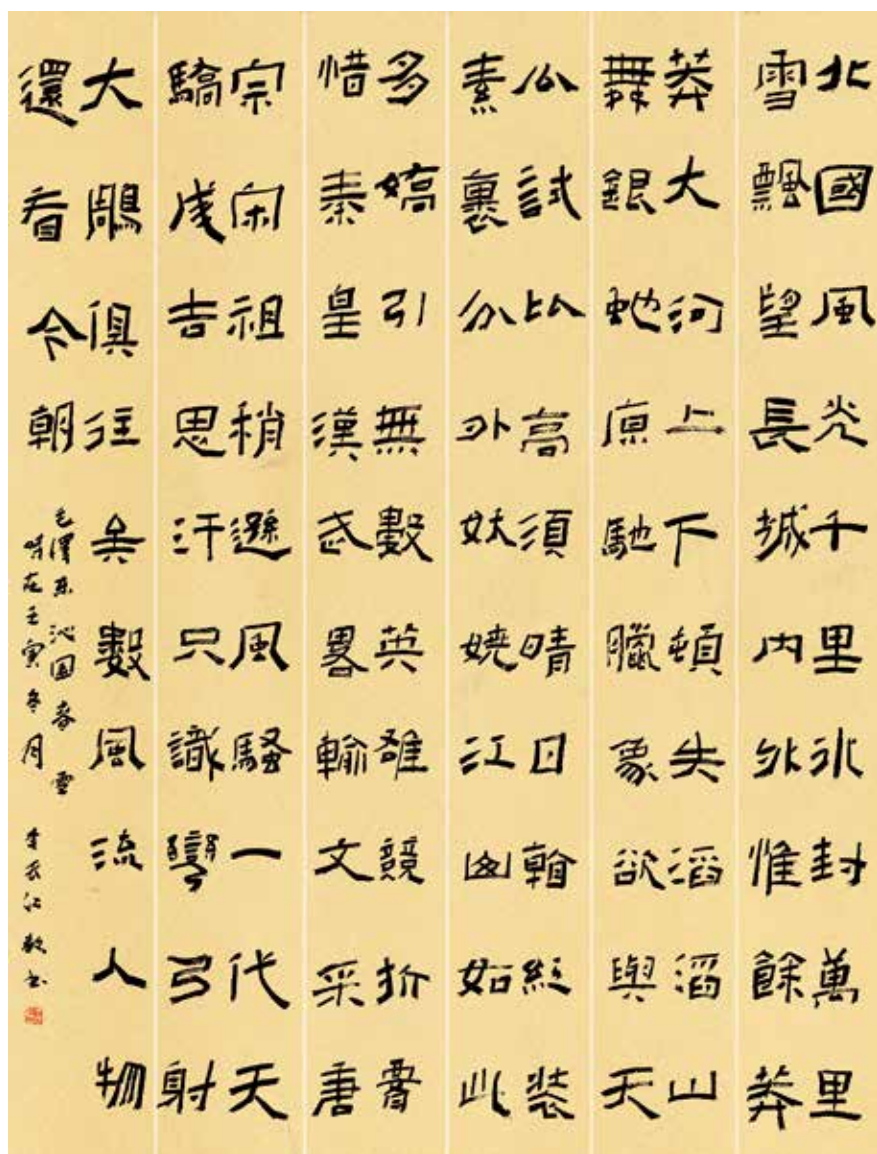 北國風光千里冰封萬里
雪飄望長城內外惟餘莽
莽大河上下頓失滔滔山
舞銀蛇原馳臘象欲與天
公試比高須晴日翰紅裝
素裹分外妖嬈江山如此
多嬌引無數英雄競折腰
惜秦皇漢武畧輸文采唐
宗宋祖稍遜風騷一代天
驕成吉思汗只識彎弓射
大鵰俱往矣數風流人物
還看今朝
毛澤东沁园春雪
時在壬寅冬月李长江敬书